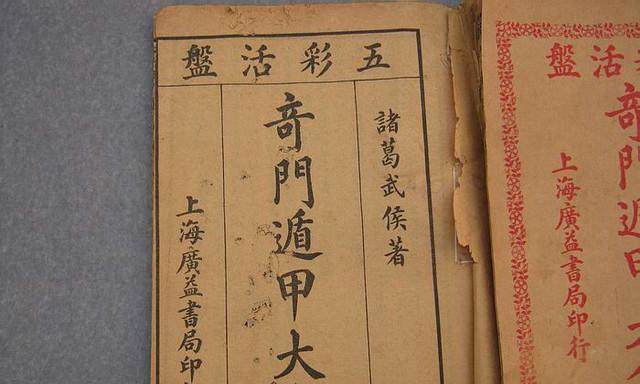 五彩活盤
諸葛武侯著
奇門遁甲大
上海廣益書局印
活盤
奇門遁甲
上海廣益書局印行